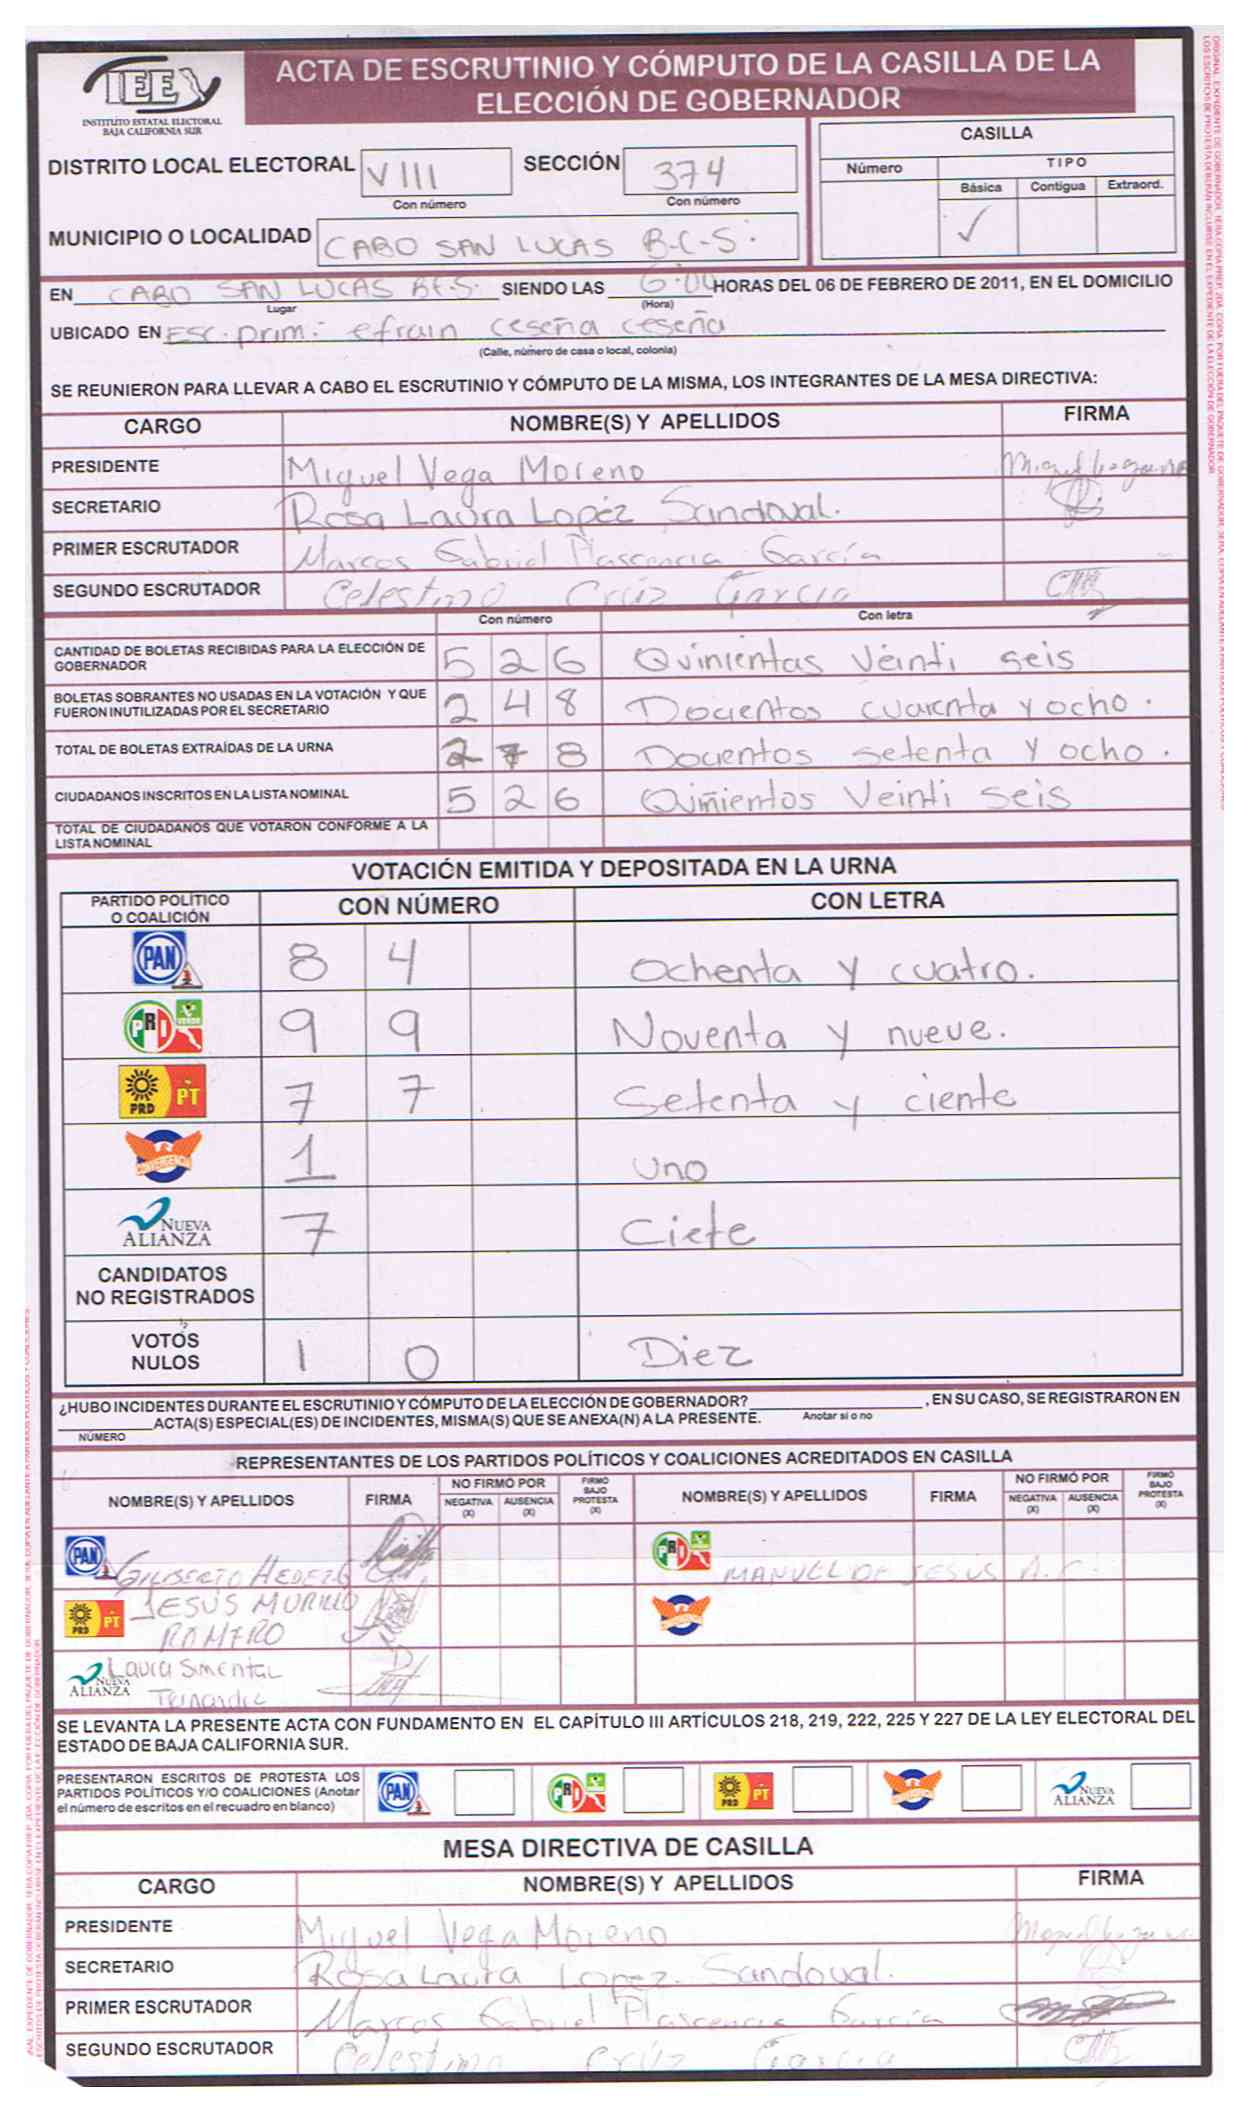 IEE
INSTITUTO ESTATAL ELECTORAL
BAJA CALIFORNIA SUR
ACTA DE ESCRUTINIO Y CÓMPUTO DE LA CASILLA DE LA
ELECCIÓN DE GOBERNADOR
DISTRITO LOCAL ELECTORAL VIII SECCIÓN 374
Con número Con número
MUNICIPIO O LOCALIDAD CABO SAN LUCAS B.C.S.
CASILLA
Número TIPO
Básica Contigua Extraord.
✓
EN CABO SAN LUCAS B.C.S. SIENDO LAS 6:00 HORAS DEL 06 DE FEBRERO DE 2011, EN EL DOMICILIO
Lugar (Hora)
UBICADO EN Esc. prim. efrain ceseña ceseña
(Calle, número de casa o local, colonia)
SE REUNIERON PARA LLEVAR A CABO EL ESCRUTINIO Y CÓMPUTO DE LA MISMA, LOS INTEGRANTES DE LA MESA DIRECTIVA:
CARGO NOMBRE(S) Y APELLIDOS FIRMA
PRESIDENTE Miguel Vega Moreno
SECRETARIO Rosa Laura Lopéz Sandoval.
PRIMER ESCRUTADOR Marcos Gabriel Plascencia García
SEGUNDO ESCRUTADOR Celestino Crúz García
Con número Con letra
CANTIDAD DE BOLETAS RECIBIDAS PARA LA ELECCIÓN DE
GOBERNADOR 5 2 6 Quinientas Veinti seis
BOLETAS SOBRANTES NO USADAS EN LA VOTACIÓN Y QUE
FUERON INUTILIZADAS POR EL SECRETARIO 2 4 8 Docientos cuarenta y ocho.
TOTAL DE BOLETAS EXTRAÍDAS DE LA URNA 2 7 8 Docientos setenta y ocho.
CIUDADANOS INSCRITOS EN LA LISTA NOMINAL 5 2 6 Quinientos Veinti seis
TOTAL DE CIUDADANOS QUE VOTARON CONFORME A LA
LISTA NOMINAL
VOTACIÓN EMITIDA Y DEPOSITADA EN LA URNA
PARTIDO POLÍTICO
O COALICIÓN CON NÚMERO CON LETRA
PAN 8 4 Ochenta y cuatro.
PRI VERDE 9 9 Noventa y nueve.
PRD PT 7 7 Setenta y ciente
CONVERGENCIA 1 uno
NUEVA ALIANZA 7 Ciete
CANDIDATOS
NO REGISTRADOS
VOTOS
NULOS 1 0 Diez
¿HUBO INCIDENTES DURANTE EL ESCRUTINIO Y CÓMPUTO DE LA ELECCIÓN DE GOBERNADOR? , EN SU CASO, SE REGISTRARON EN
Anotar si o no
ACTA(S) ESPECIAL(ES) DE INCIDENTES, MISMA(S) QUE SE ANEXA(N) A LA PRESENTE.
NÚMERO
REPRESENTANTES DE LOS PARTIDOS POLÍTICOS Y COALICIONES ACREDITADOS EN CASILLA
NOMBRE(S) Y APELLIDOS FIRMA NO FIRMÓ POR NEGATIVA (X) AUSENCIA (X) FIRMÓ BAJO PROTESTA (X) NOMBRE(S) Y APELLIDOS FIRMA NO FIRMÓ POR NEGATIVA (X) AUSENCIA (X) FIRMÓ BAJO PROTESTA (X)
PAN GILBERTO PRI MANUEL DE JESUS A.
PRD PT JESUS MURILLO
ROMERO
Laura Simental
NUEVA ALIANZA
SE LEVANTA LA PRESENTE ACTA CON FUNDAMENTO EN EL CAPÍTULO III ARTÍCULOS 218, 219, 222, 225 Y 227 DE LA LEY ELECTORAL DEL
ESTADO DE BAJA CALIFORNIA SUR.
PRESENTARON ESCRITOS DE PROTESTA LOS
PARTIDOS POLÍTICOS Y/O COALICIONES (Anotar
el número de escritos en el recuadro en blanco) PAN PRI PRD PT NUEVA ALIANZA
MESA DIRECTIVA DE CASILLA
CARGO NOMBRE(S) Y APELLIDOS FIRMA
PRESIDENTE Miguel Vega Moreno
SECRETARIO Rosa Laura Lopez. Sandoval.
PRIMER ESCRUTADOR Marcos Gabriel Plascencia García
SEGUNDO ESCRUTADOR Celestino Crúz García